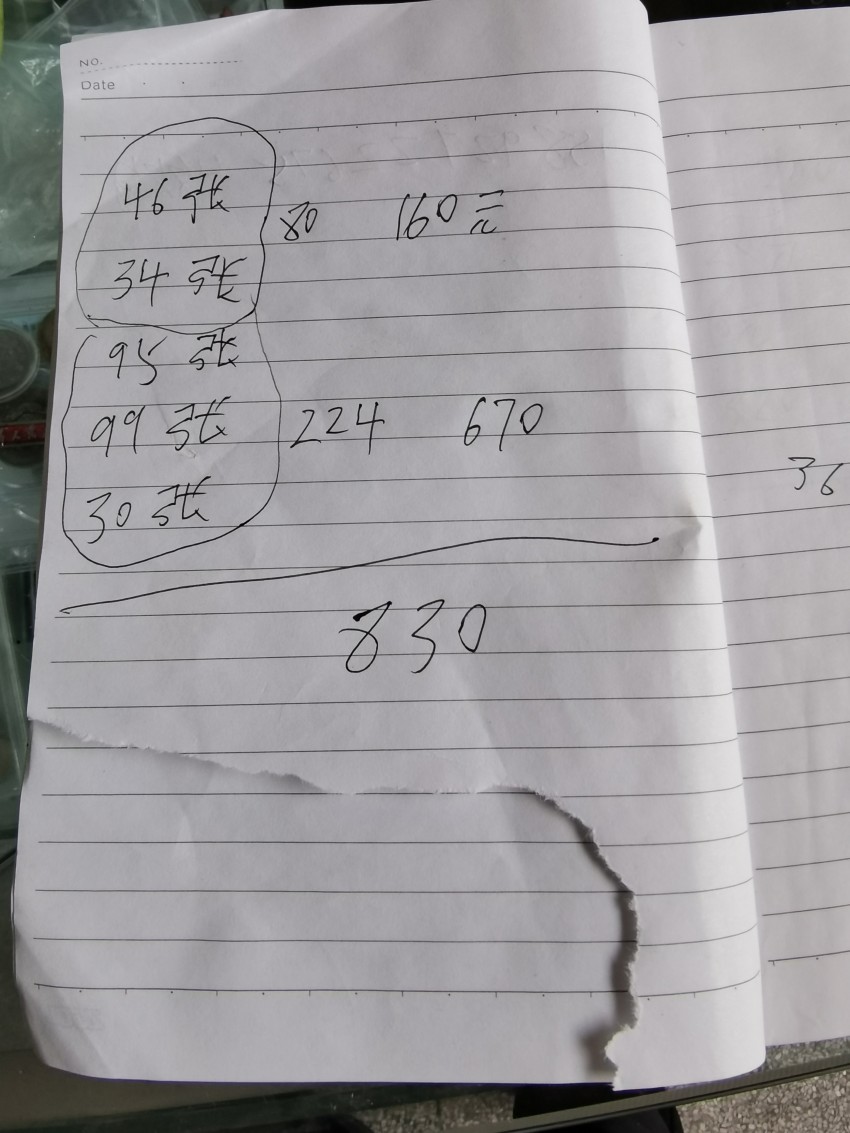 NO.
Date
46张
34张 80 160元
95张
99张 224 670
30张
830
36